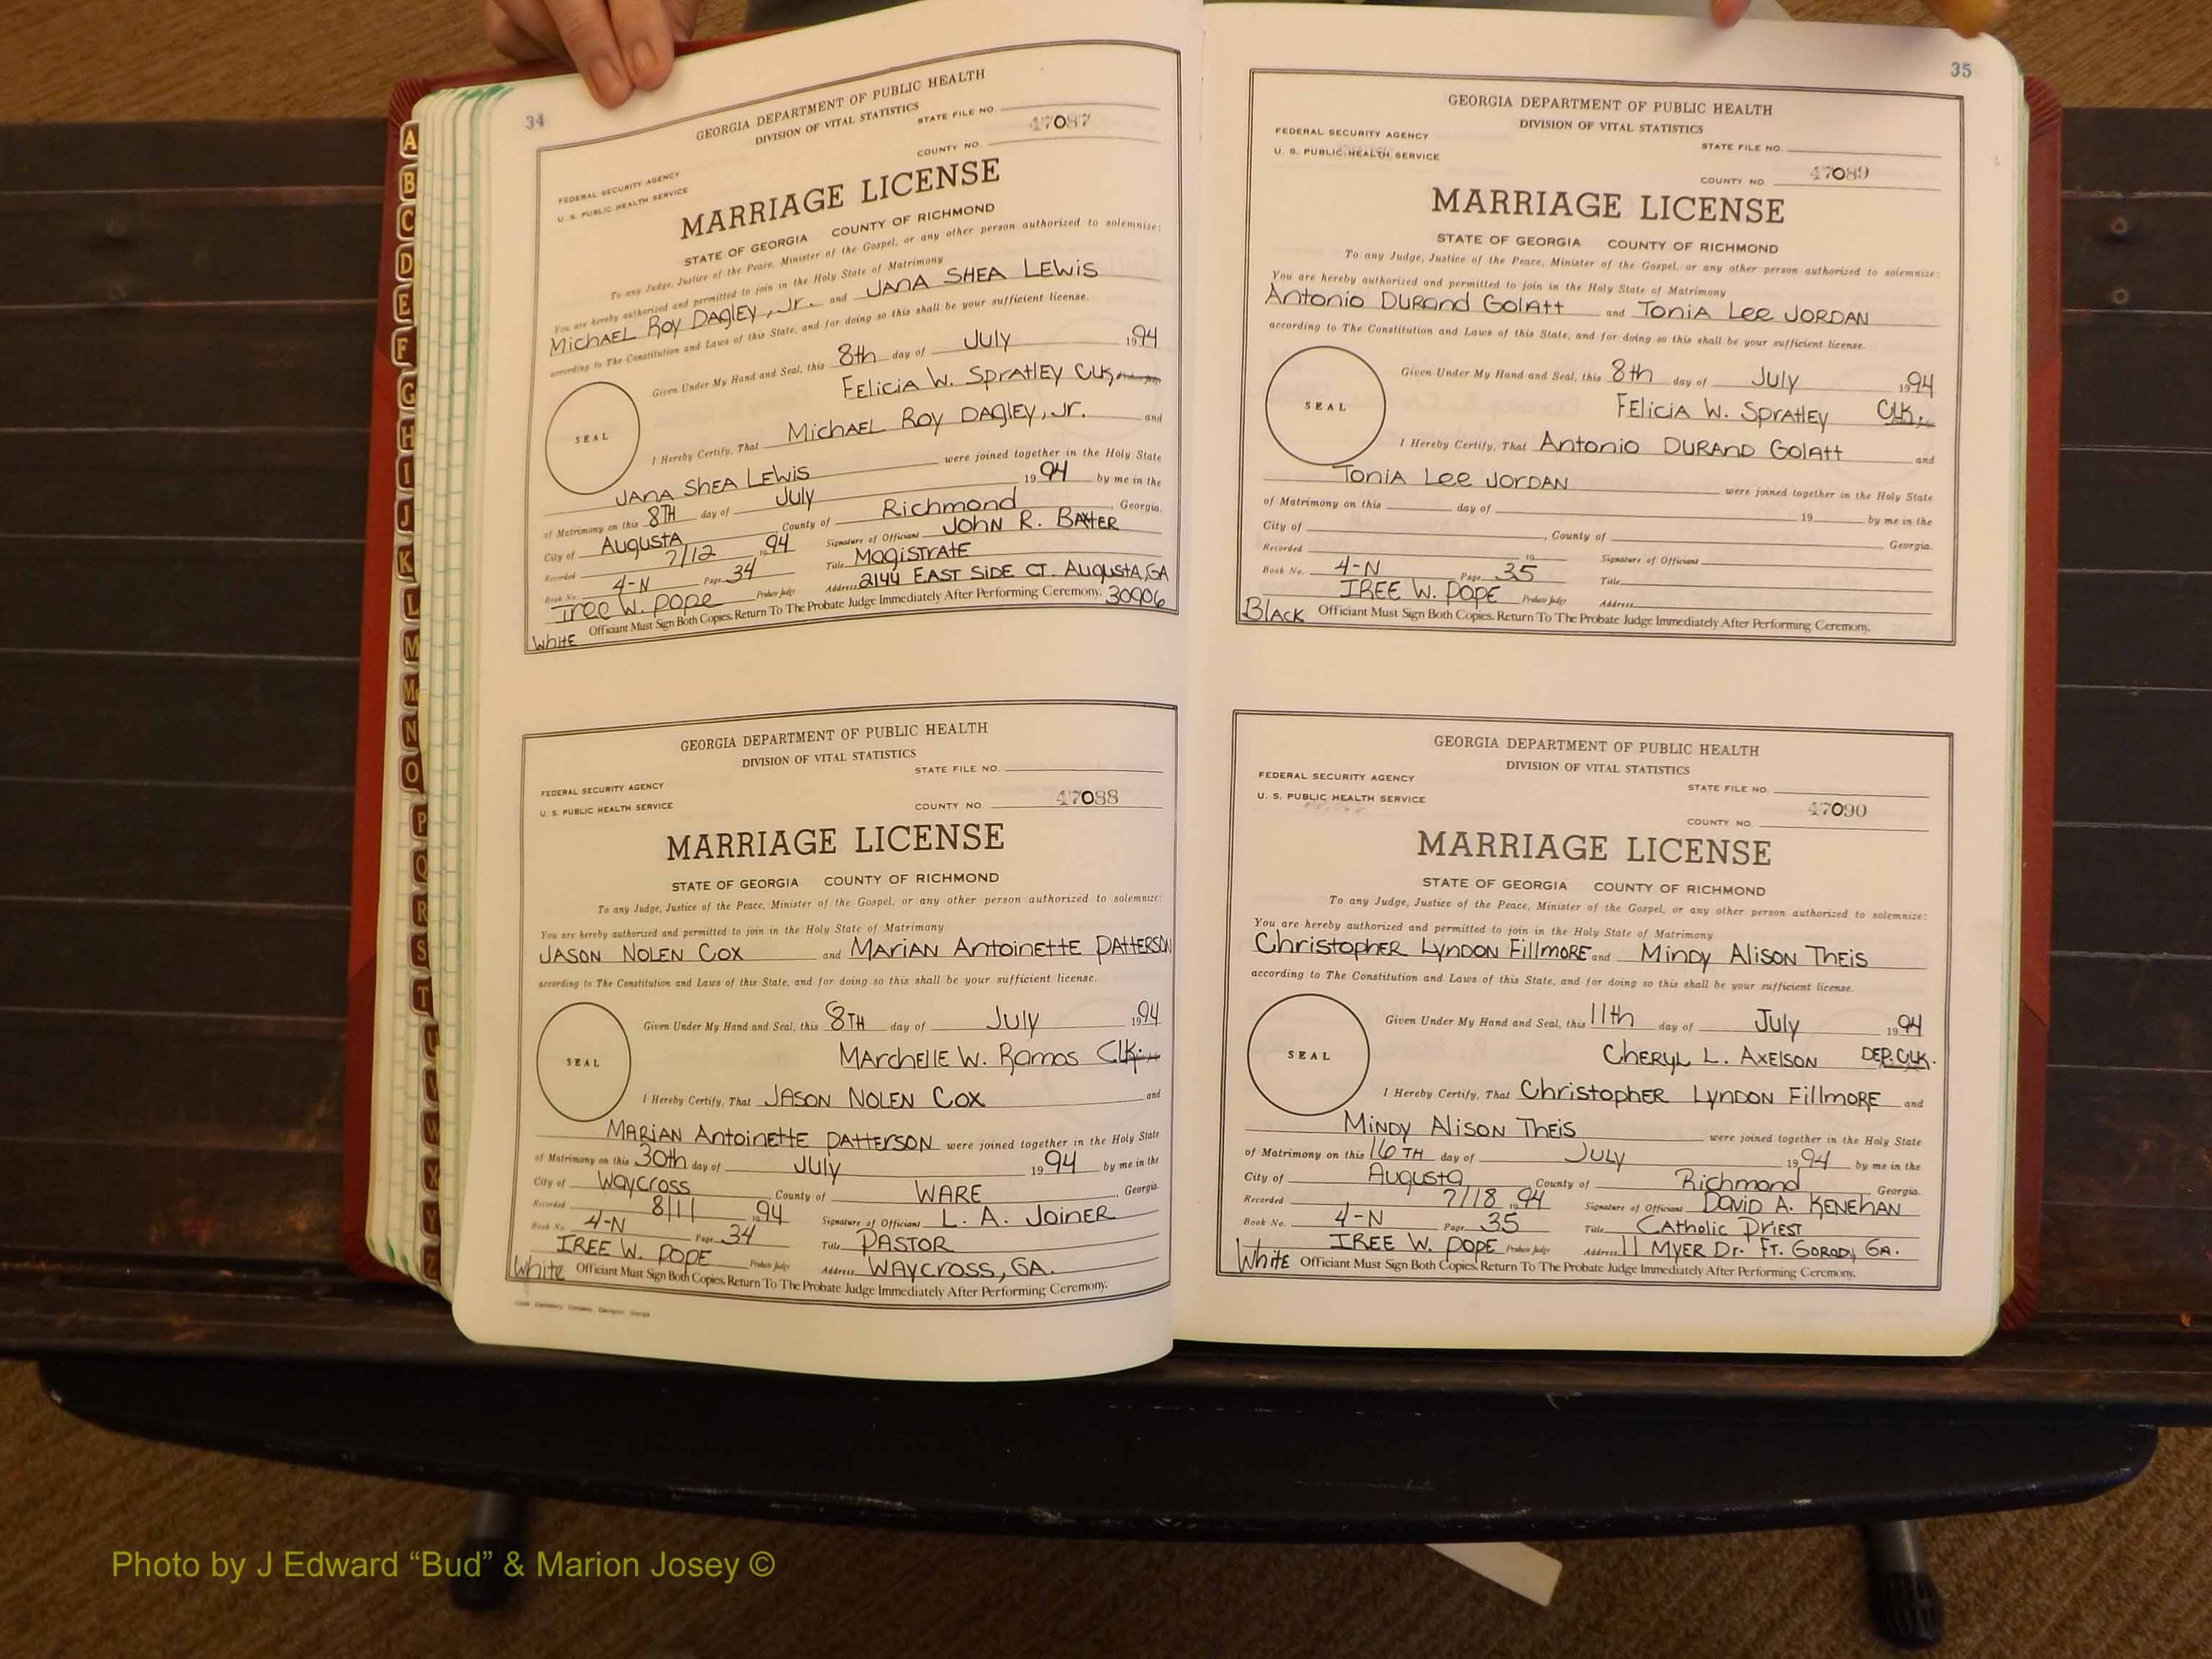 34
GEORGIA DEPARTMENT OF PUBLIC HEALTH
DIVISION OF VITAL STATISTICS
STATE FILE NO.
47087
COUNTY NO.
FEDERAL SECURITY AGENCY
U. S. PUBLIC HEALTH SERVICE
MARRIAGE LICENSE
STATE OF GEORGIA COUNTY OF RICHMOND
To any Judge, Justice of the Peace, Minister of the Gospel, or any other person authorized to solemnize:
You are hereby authorized and permitted to join in the Holy State of Matrimony
MichAEL Roy DAgley, Jr. and JANA SHEA LEWis
according to The Constitution and Laws of this State, and for doing so this shall be your sufficient license.
Given Under My Hand and Seal, this 8th day of July 1994
FEliciA W. SprAtley CLK.
SEAL
I Hereby Certify, That MichAEL Roy DAgley, Jr. and
JANA SHEA LEWis were joined together in the Holy State
of Matrimony on this 8TH day of July 1994 by me in the
City of AugustA County of Richmond, Georgia.
Recorded 7/12 1994 Signature of Officiant JohN R. BAXTER
Book No. 4-N Page 34 Title MAgistrAtE
Iree W. Pope Probate Judge Address 2144 EAST SiDE CT. AugustA, GA
Officiant Must Sign Both Copies. Return To The Probate Judge Immediately After Performing Ceremony. 30906
WhitE
GEORGIA DEPARTMENT OF PUBLIC HEALTH
DIVISION OF VITAL STATISTICS
STATE FILE NO.
FEDERAL SECURITY AGENCY
U. S. PUBLIC HEALTH SERVICE
COUNTY NO. 47088
MARRIAGE LICENSE
STATE OF GEORGIA COUNTY OF RICHMOND
To any Judge, Justice of the Peace, Minister of the Gospel, or any other person authorized to solemnize:
You are hereby authorized and permitted to join in the Holy State of Matrimony
JASON NOLEN Cox and MARiAN AntoinEttE PAttERSON
according to The Constitution and Laws of this State, and for doing so this shall be your sufficient license.
Given Under My Hand and Seal, this 8TH day of July 1994
MArchellE W. Ramos Clk.
SEAL
I Hereby Certify, That JASON NOLEN Cox and
MARiAN AntoinEttE PAttERSON were joined together in the Holy State
of Matrimony on this 30th day of July 1994 by me in the
City of Waycross, County of WARE, Georgia.
Recorded 8/11 1994 Signature of Officiant L. A. JoiNER
Book No. 4-N Page 34 Title PASTOR
IREE W. POPE Probate Judge Address WAYCROSS, GA.
White Officiant Must Sign Both Copies. Return To The Probate Judge Immediately After Performing Ceremony.
35
GEORGIA DEPARTMENT OF PUBLIC HEALTH
DIVISION OF VITAL STATISTICS
FEDERAL SECURITY AGENCY
U. S. PUBLIC HEALTH SERVICE
STATE FILE NO.
COUNTY NO. 47089
MARRIAGE LICENSE
STATE OF GEORGIA COUNTY OF RICHMOND
To any Judge, Justice of the Peace, Minister of the Gospel, or any other person authorized to solemnize:
You are hereby authorized and permitted to join in the Holy State of Matrimony
Antonio DURAnd GolAtt and ToniA Lee JORDAN
according to The Constitution and Laws of this State, and for doing so this shall be your sufficient license.
Given Under My Hand and Seal, this 8th day of July 1994
FEliciA W. SprAtley Clk.
SEAL
I Hereby Certify, That Antonio DURAnd GolAtt and
ToniA Lee JORDAN were joined together in the Holy State
of Matrimony on this day of 19 by me in the
City of , County of , Georgia.
Recorded 19 Signature of Officiant
Book No. 4-N Page 35 Title
IREE W. POPE Probate Judge Address
BlAck Officiant Must Sign Both Copies. Return To The Probate Judge Immediately After Performing Ceremony.
GEORGIA DEPARTMENT OF PUBLIC HEALTH
DIVISION OF VITAL STATISTICS
FEDERAL SECURITY AGENCY
U. S. PUBLIC HEALTH SERVICE
STATE FILE NO.
COUNTY NO. 47090
MARRIAGE LICENSE
STATE OF GEORGIA COUNTY OF RICHMOND
To any Judge, Justice of the Peace, Minister of the Gospel, or any other person authorized to solemnize:
You are hereby authorized and permitted to join in the Holy State of Matrimony
ChristophER LyNDON FillmORE and MiNDy AlisoN ThEis
according to The Constitution and Laws of this State, and for doing so this shall be your sufficient license.
Given Under My Hand and Seal, this 11th day of July 1994
CHERyl L. AxElsoN DEP. CLK.
SEAL
I Hereby Certify, That ChristophER LyNDON FillmORE and
MiNDy AlisoN ThEis were joined together in the Holy State
of Matrimony on this 16TH day of July 1994 by me in the
City of Augusta County of Richmond, Georgia.
Recorded 7/18 1994 Signature of Officiant DaviD A. KENEHAN
Book No. 4-N Page 35 Title CAtholic PriEst
IREE W. POPE Probate Judge Address 11 MyER Dr. FT. GORODN, GA.
WhitE Officiant Must Sign Both Copies. Return To The Probate Judge Immediately After Performing Ceremony.
A
B
C
D
E
F
G
H
I
J
K
L
M
Mc
N
O
P
Q
R
S
T
W
X
Y
Z
Photo by J Edward “Bud” & Marion Josey ©